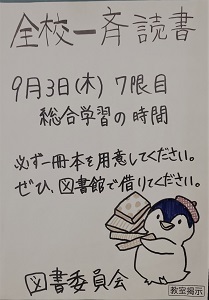 全校一斉読書
9月3日(木) 7限目
総合学習の時間
必ず一冊本を用意してください。
ぜひ、図書館で借りてください。
図書委員会
教室掲示